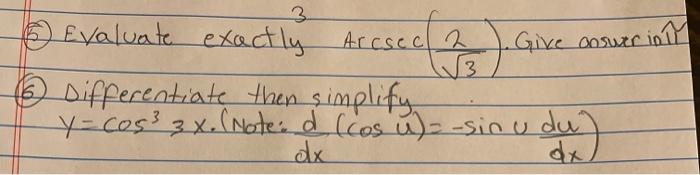 3
⑤ Evaluate exactly Arcsec(2/√3). Give answer in π
⑥ Differentiate then simplify
y = cos³ 3x. (Note: d/dx (cos u) = -sin u du/dx)